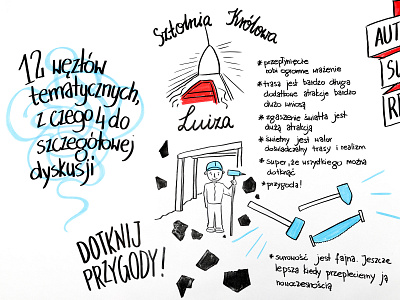 12 węzłów
tematycznych,
z czego 4 do
szczegółowej
dyskusji
Sztolnia Królowa
Luiza
* przepłynięcie
robi ogromne wrażenie
* trasa jest bardzo długa
dodatkowe atrakcje bardzo
dużo wnoszą
* zgaszenie światła jest
dużą atrakcją
* świetny jest walor
doświadczalny trasy i realizm
* super, że wszystkiego można
dotknąć
* przygoda!
DOTKNIJ
PRZYGODY!
* surowość jest fajna. Jeszcze
lepsza kiedy przepleciemy ją
nowoczesnością
AUT
SU
RE